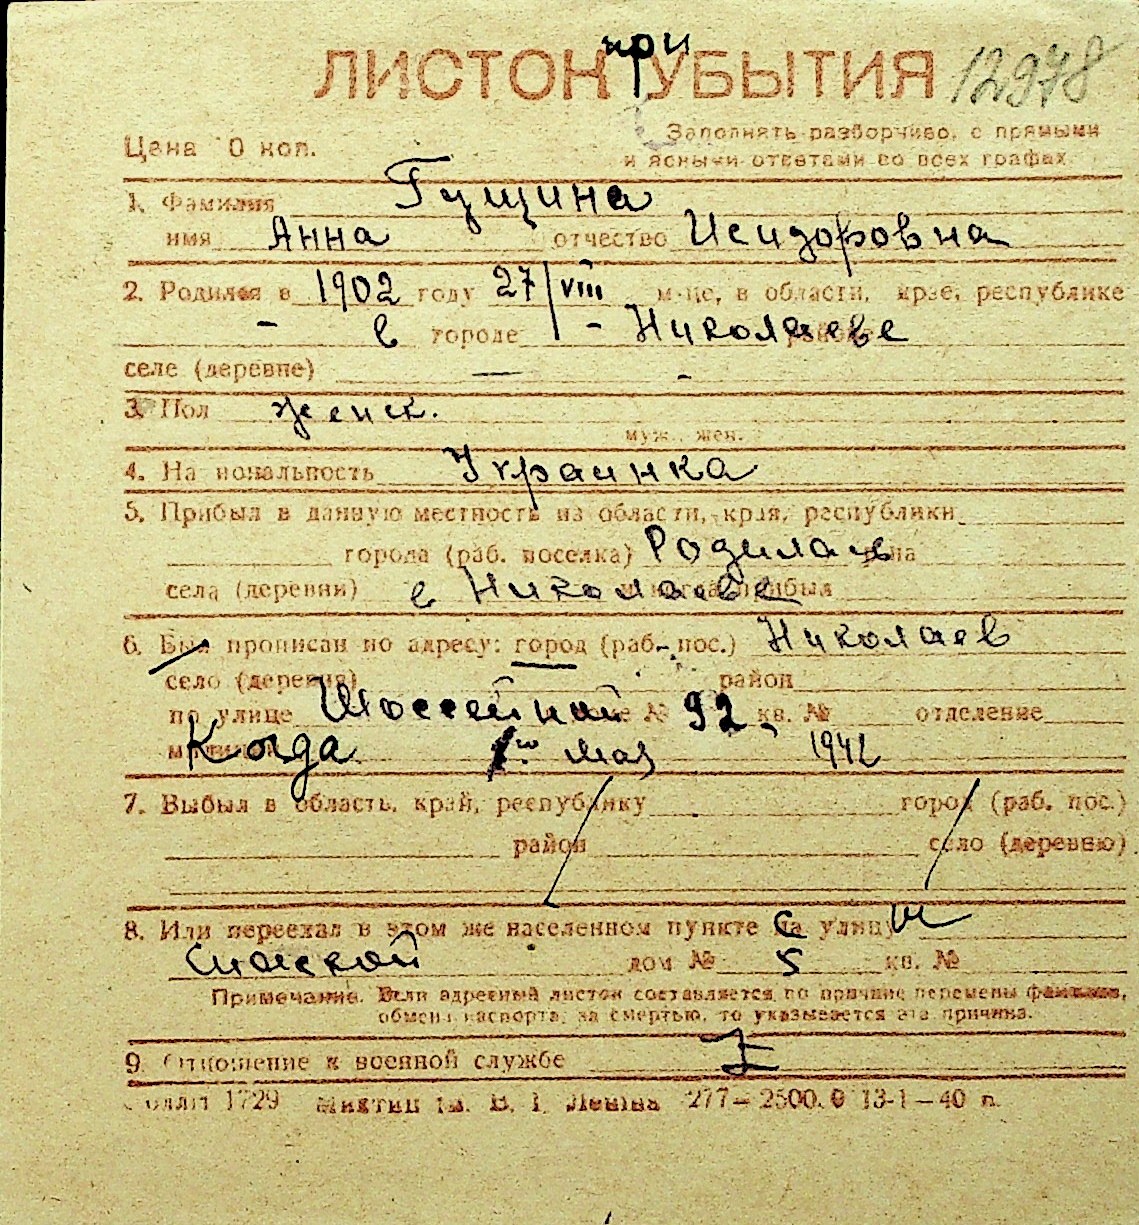 ЛИСТОК при УБЫТИЯ 12978
Цена 10 коп.
Заполнять разборчиво, с прямыми
и ясными ответами во всех графах
1. Фамилия Гущина
имя Анна отчество Исидоровна
2. Родился в 1902 году 27/VIII м-це, в области, крае, республике
- в городе - Николаеве
селе (деревне) — -
3. Пол женск.
муж., жен.
4. Национальность Украинка
5. Прибыл в данную местность из области, края, республики
города (раб. поселка) Родилась
села (деревни) в Николаеве
6. Был прописан по адресу: город (раб. пос.) Николаев
село (деревня) район
по улице Шоссейной № 92, кв. № отделение
Когда 1го мая 1942
7. Выбыл в область, край, республику город (раб. пос.)
район село (деревню)
8. Или переехал в этом же населенном пункте с улицы
Спасской дом № 5 кв. №
Примечание. Если адресный листок составляется по причине перемены фамилии,
обмена паспорта, за смертью, то указывается эта причина.
9. Отношение к военной службе
1729 им. В. І. Леніна 277—2500.0 13-1—40 п.